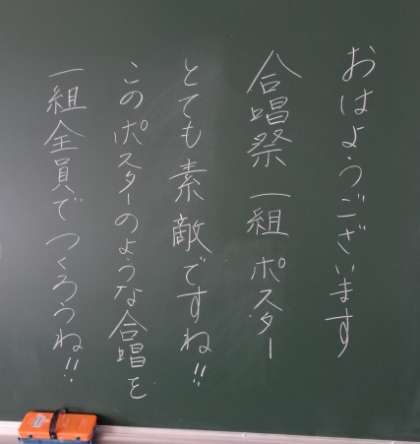 おはようございます
合唱祭 一組 ポスター
とても素敵ですね!!
このポスターのような合唱を
一組全員でつくろうね!!